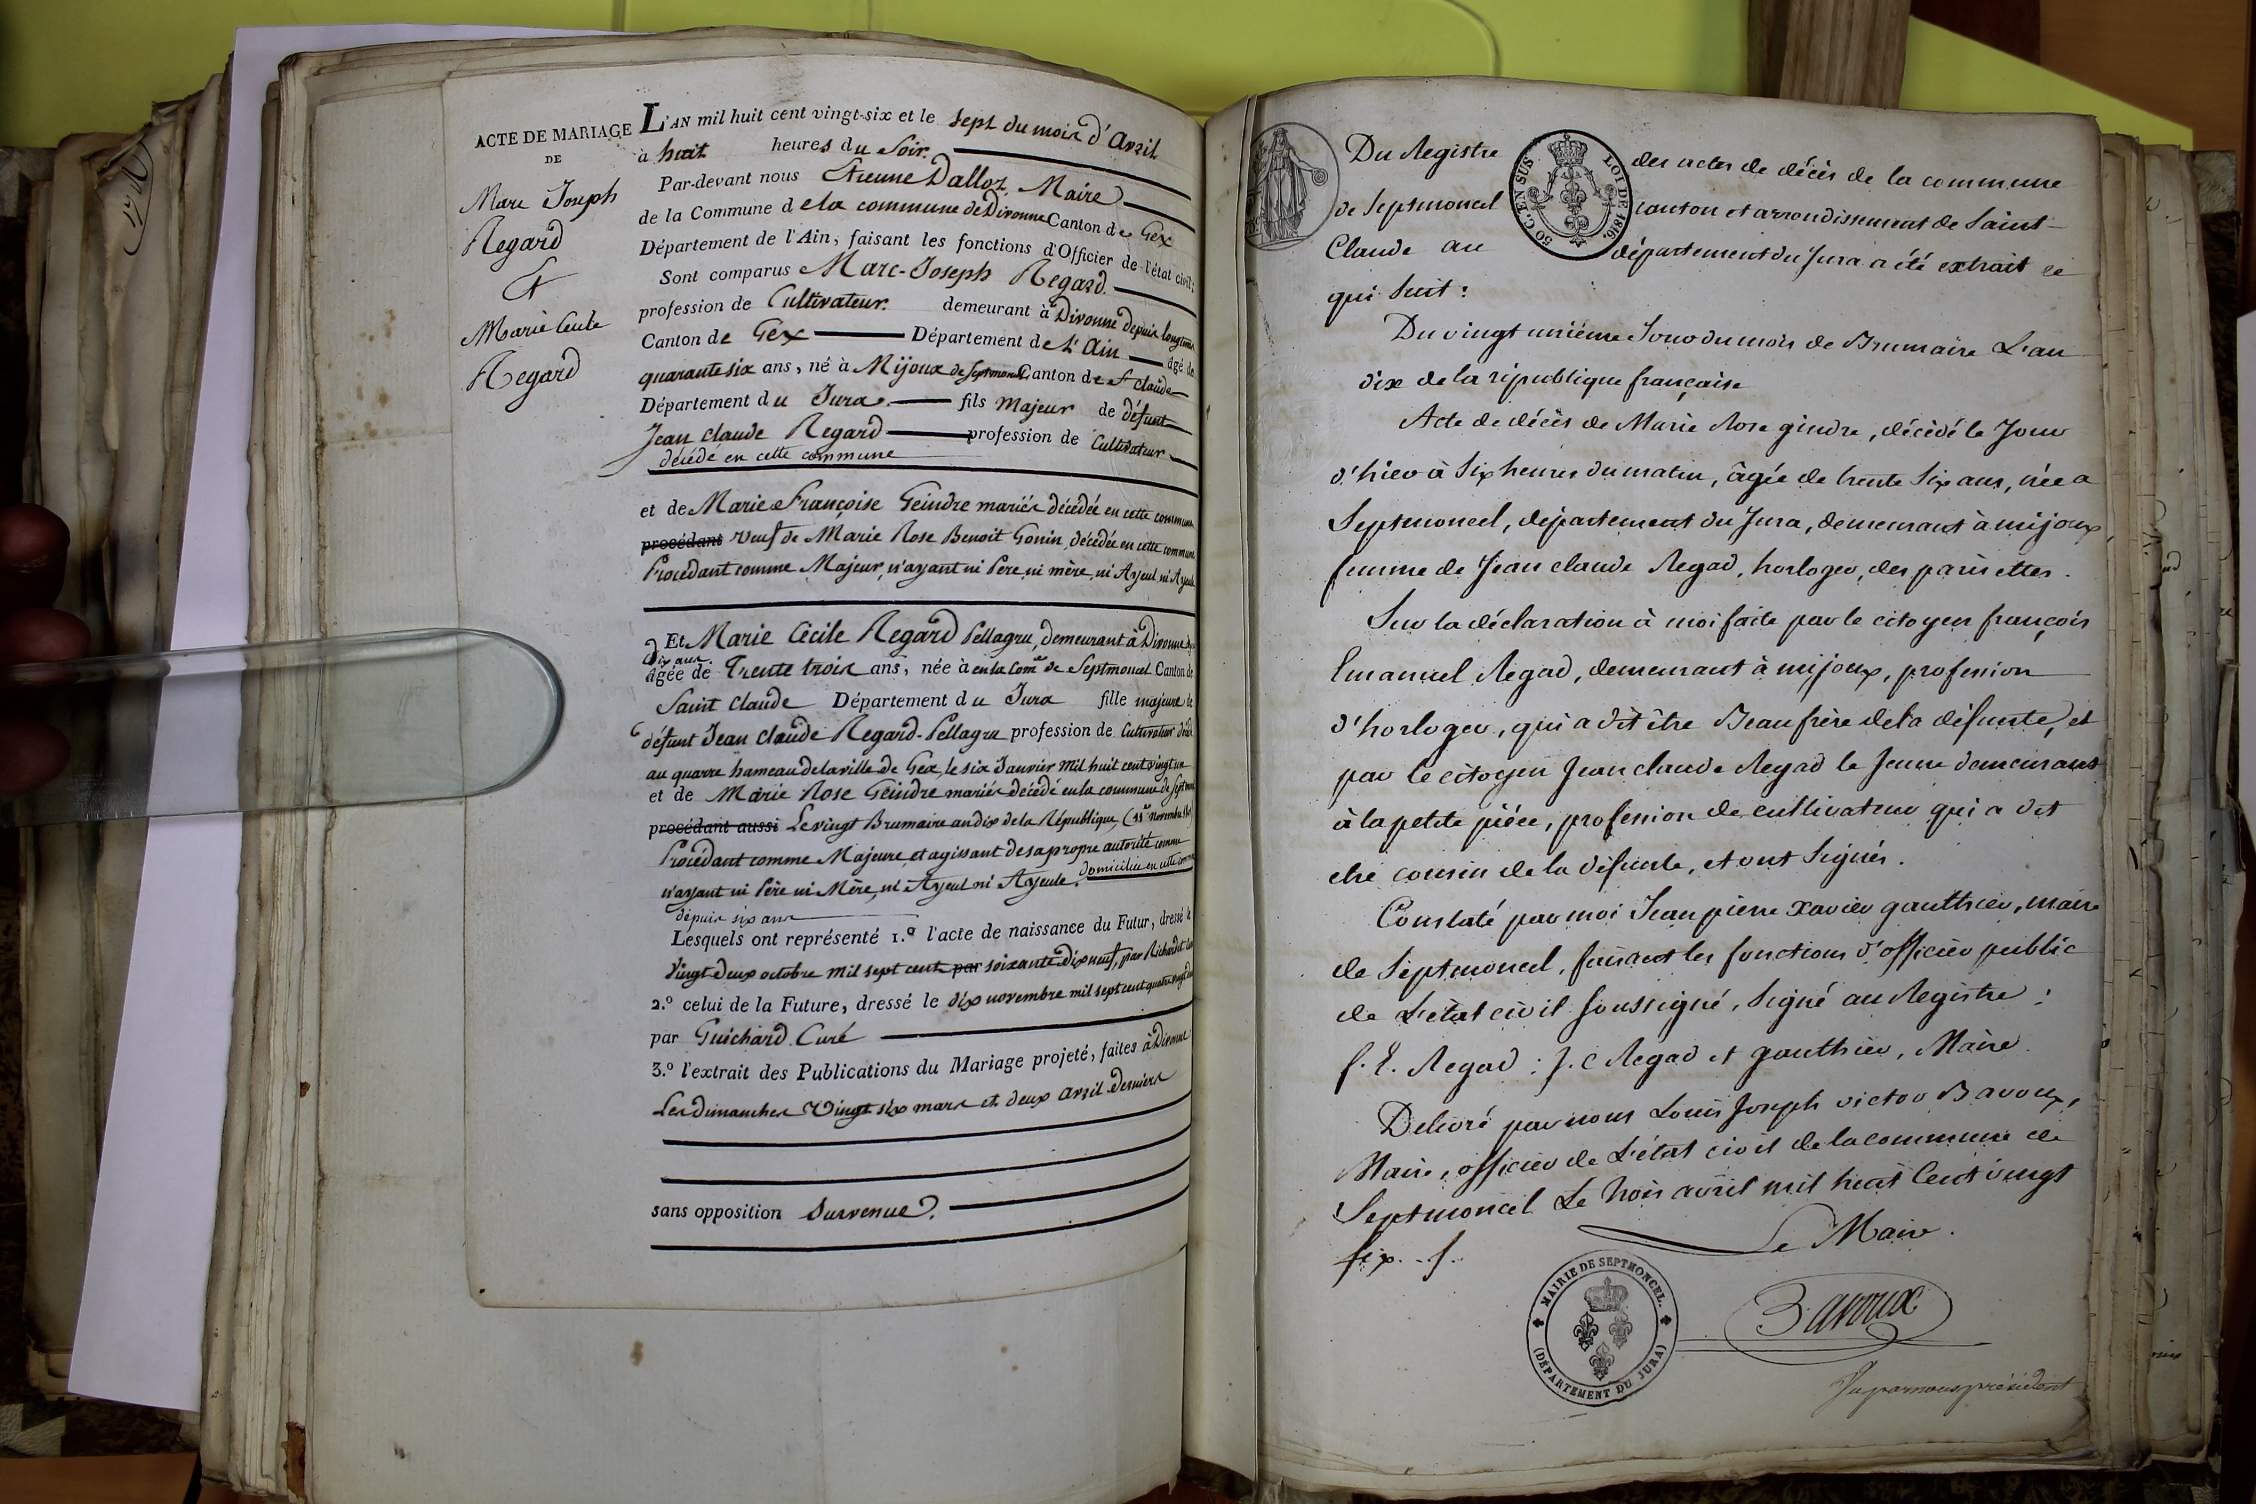 ACTE DE MARIAGE
DE
Marc Joseph
Regard
&
Marie Cécile
Regard
L'AN mil huit cent vingt-six et le sept du mois d'Avril
à huit heures du soir.
Par-devant nous Etienne Dalloz, Maire
de la Commune de la commune de Divonne Canton de Gex
Département de l'Ain, faisant les fonctions d'Officier de l'état civil;
Sont comparus Marc-Joseph Regard.
profession de Cultivateur. demeurant à Divonne depuis longtems
Canton de Gex Département de L'Ain âgé de
quarante six ans, né à Mijoux de Septmoncel Canton de St Claude
Département du Jura. fils majeur de défunt
Jean Claude Regard profession de Cultivateur
décédé en cette commune
et de Marie Françoise Geindre mariés décédée en cette commune
procédant veuf de Marie Rose Benoit Gonin, décédée en cette commune
Procédant comme Majeur, n'ayant ni Père, ni mère, ni Ayeul ni Ayeule
Et Marie Cécile Regard Pellagru, demeurant à Divonne
dix ans.
âgée de Trente trois ans, née à en la Come de Septmoncel Canton de
Saint Claude Département du Jura fille majeure de
défunt Jean Claude Regard-Pellagru profession de Cultivateur décédé
au quarre hameau de la ville de Gex, le six Janvier mil huit cent vingt un
et de Marie Rose Geindre mariés décédé en la commune de Septmoncel
procédant aussi Le vingt Brumaire an dix de la République, (11e novembre
Procédant comme Majeure et agissant de sa propre autorité comme
n'ayant ni Père ni Mère, ni Ayeul ni Ayeule. Domiciliée en cette commune
depuis six ans
Lesquels ont représenté 1.º l'acte de naissance du Futur, dressé le
vingt deux octobre mil sept cent par soixante dix neuf, par Richard
2.º celui de la Future, dressé le dix novembre mil sept cent quatre vingt
par Guichard Curé
3.º l'extrait des Publications du Mariage projeté, faites à Divonne
Les dimanches vingt six mars et deux avril derniers
sans opposition survenue.
Du Registre des actes de décès de la commune
50 C. EN SUS LOI DE 1816.
de Septmoncel canton et arrondissement de Saint-
Claude au département du Jura a été extrait ce
qui suit:
Du vingt unième Jour du mois de Brumaire L'an
dix de la république française
Acte de décès de Marie Rose gindre, décédé le Jour
d'hier à six heures du matin, âgée de trente six ans, née a
Septmoncel, département du Jura, demeurant à mijoux
femme de Jean claude Regad, horloger, des parisettes.
Sur la déclaration à moi faite par le citoyen françois
Emanuel Regad, demeurant à mijoux, profession
d'horloger, qui a dit être Beau frère de la défunte, et
par le citoyen Jean claude Regad le Jeune demeurant
à la petite pièce, profession de cultivateur qui a dit
etre cousin de la défunte, et ont signés.
Constaté par moi Jean pierre Xavier gauthier, maire
de Septmoncel, faisant les fonctions d'officier public
de L'état civil soussigné, signé au Registre:
f. E. Regad: J. C Regad et gauthier, Maire.
Délivré par nous Louis Joseph victor Bavoux,
Maire, officier de L'état civil de la commune de
Septmoncel Le trois avril mil huit Cent vingt
six. .f. Le Maire.
MAIRIE DE SEPTMONCEL.
(DÉPARTEMENT DU JURA)
Bavoux
Vu par nous président